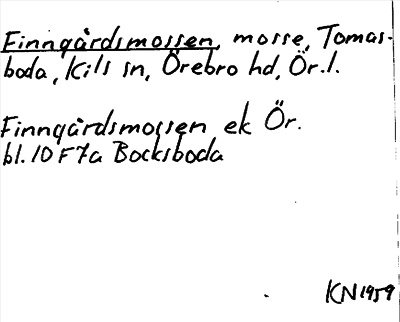 Finngårdsmossen, mosse, Tomas-
boda, Kils sn, Örebro hd, Ör.l.
Finngårdsmossen ek Ör.
bl. 10 F7a Bocksboda
KN 1959